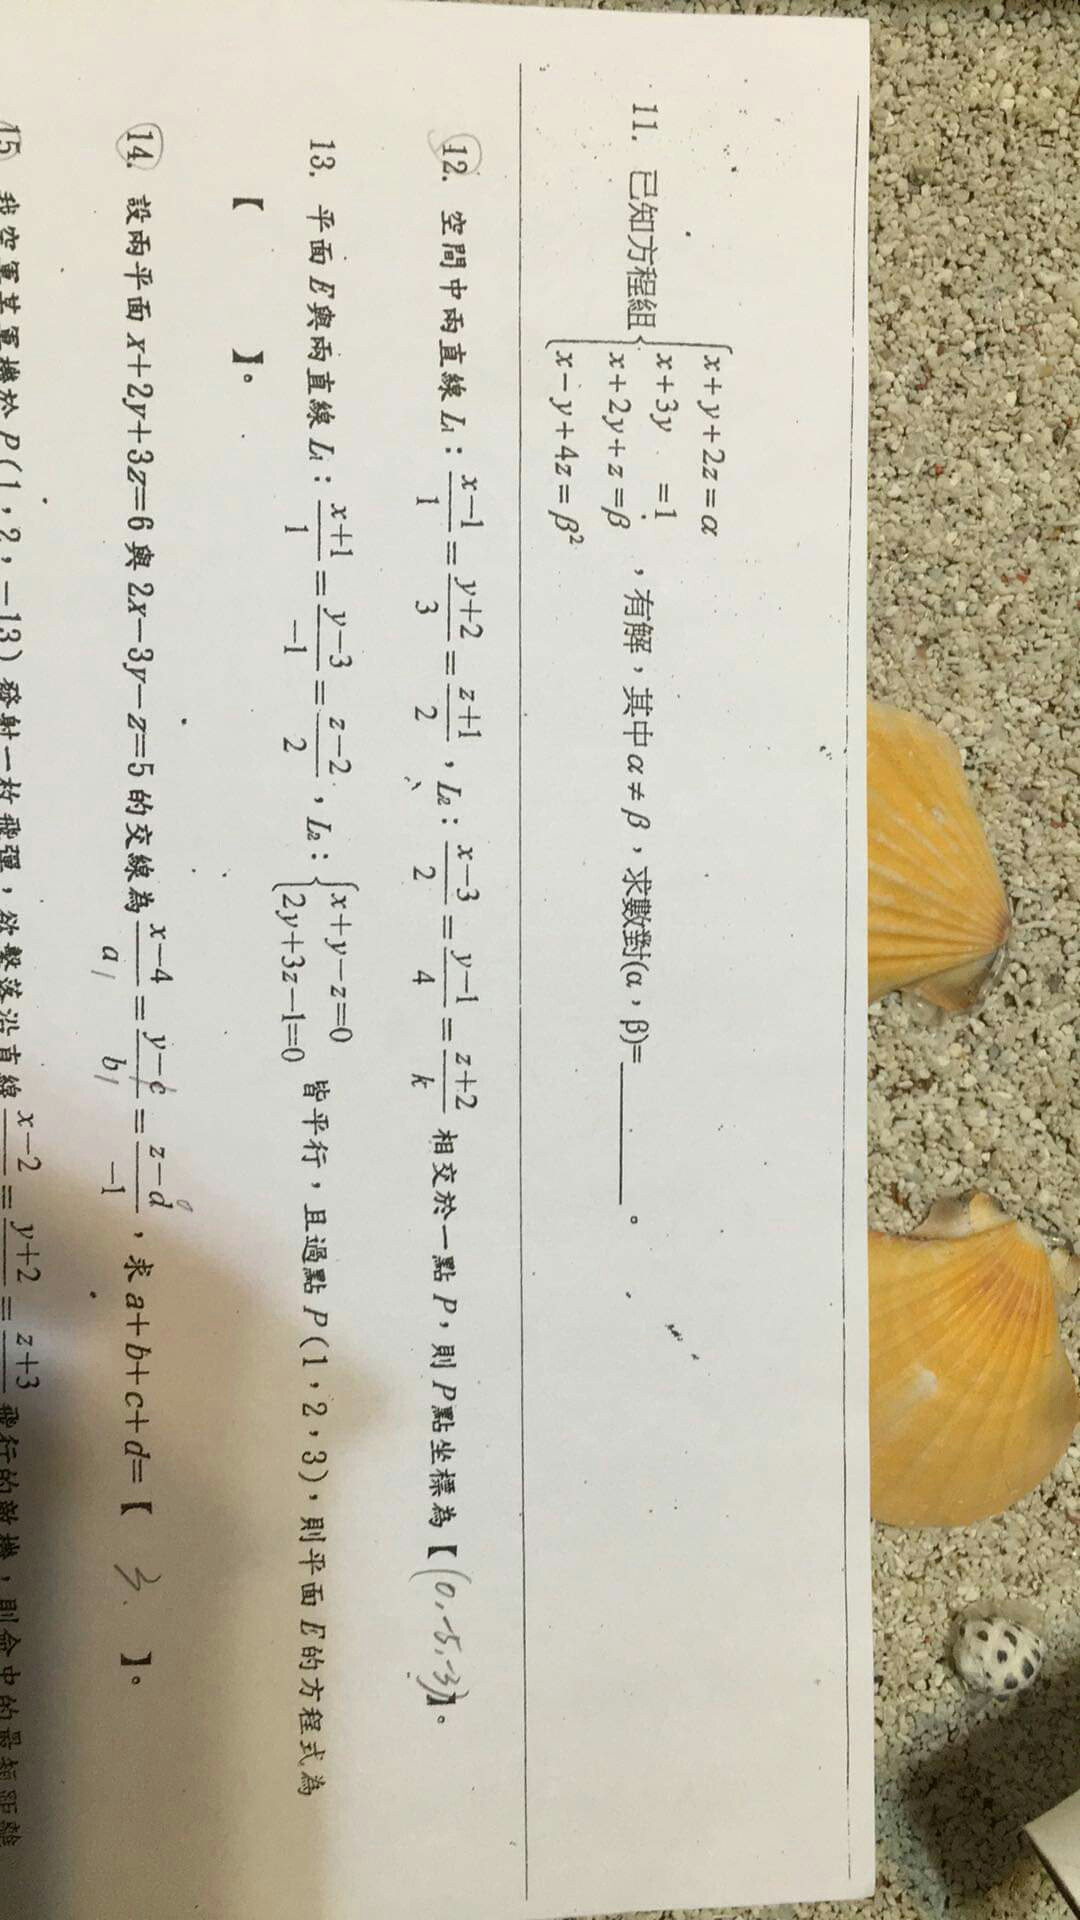 11. 已知方程組 { x+y+2z=α
x+3y =1
x+2y+z=β
x-y+4z=β² ，有解，其中α≠β，求數對(α，β)=________。
12. 空間中兩直線 L₁：(x-1)/1=(y+2)/3=(z+1)/2，L₂：(x-3)/2=(y-1)/4=(z+2)/k 相交於一點P，則P點坐標為【(0,-5,-3)】。
13. 平面E與兩直線 L₁：(x+1)/1=(y-3)/-1=(z-2)/2，L₂：{ x+y-z=0
2y+3z-1=0 皆平行，且過點P(1，2，3)，則平面E的方程式為
【 】。
14. 設兩平面x+2y+3z=6與2x-3y-z=5的交線為(x-4)/a=(y-c)/b=(z-d)/-1，求a+b+c+d=【 3 】。
15 我空軍某軍機於P(1，2，-13)發射一枚飛彈，欲擊落沿直線 x-2 = y+2 = z+3 飛行的敵機，則命中的最短距離